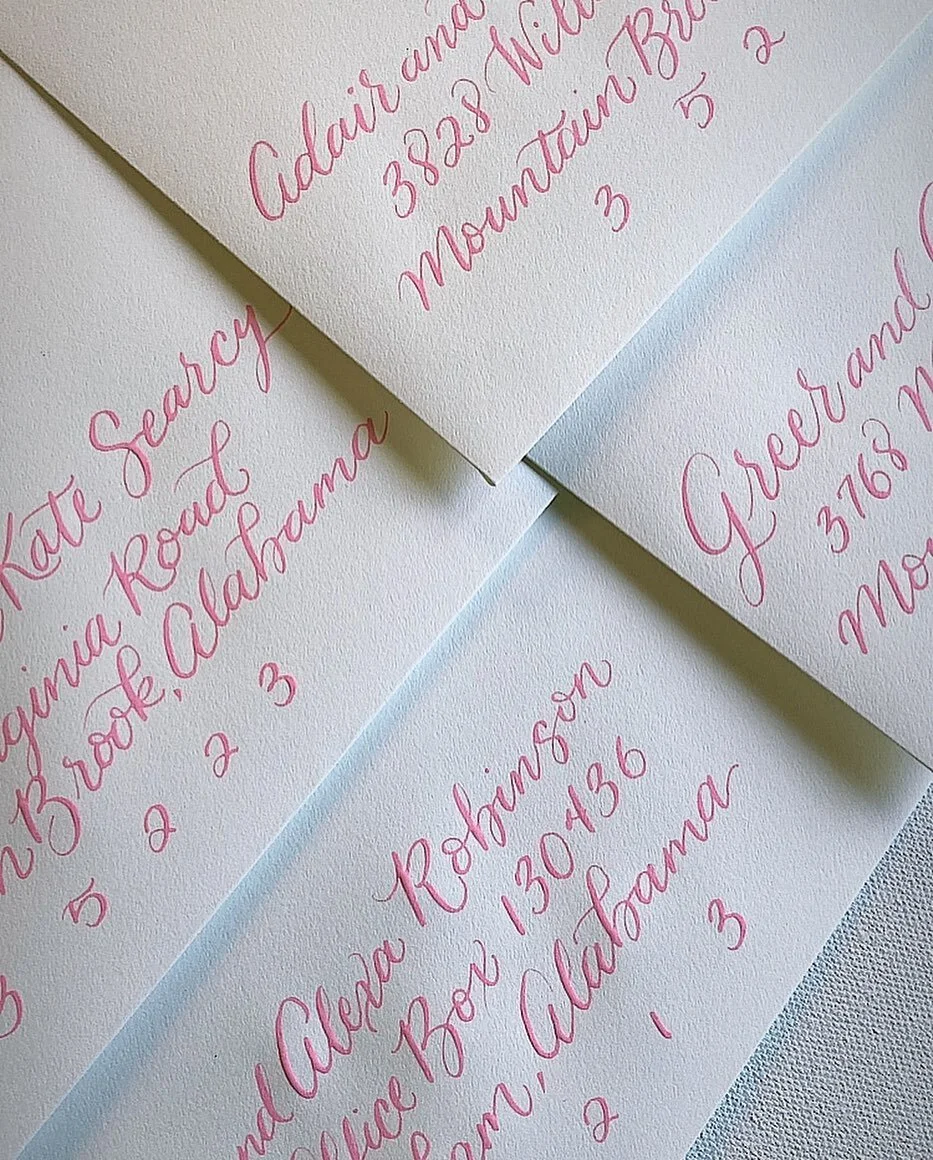 Adair and
3828
Mountain
3 5 2
Kate Searcy
Road
Brook, Alabama
3 5 2 2 3
Greer and
3768
Alexa Robinson
Box 130436
Alabama
2 1 3